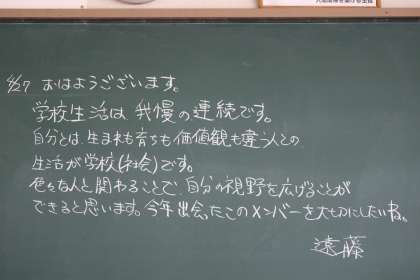 4/27 おはようございます。
学校生活は我慢の連続です。
自分とは、生まれも育ちも価値観も違う人との
生活が学校(社会)です。
色々な人と関わることで、自分の視野を広げることが
できると思います。今年出会ったこのメンバーを大切にしたいね。
遠藤